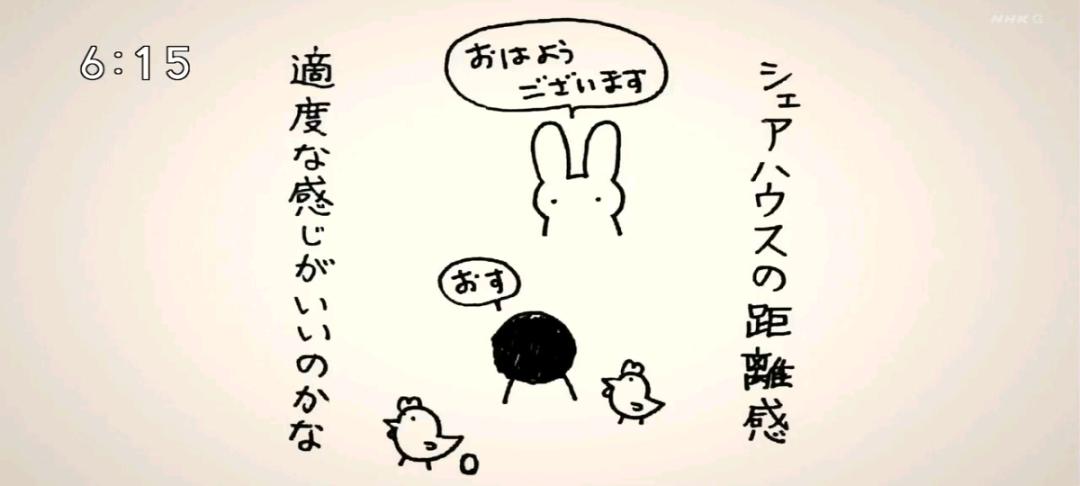 NHK G
6:15
シェアハウスの距離感
おはよう
ございます
おす
適度な感じがいいのかな